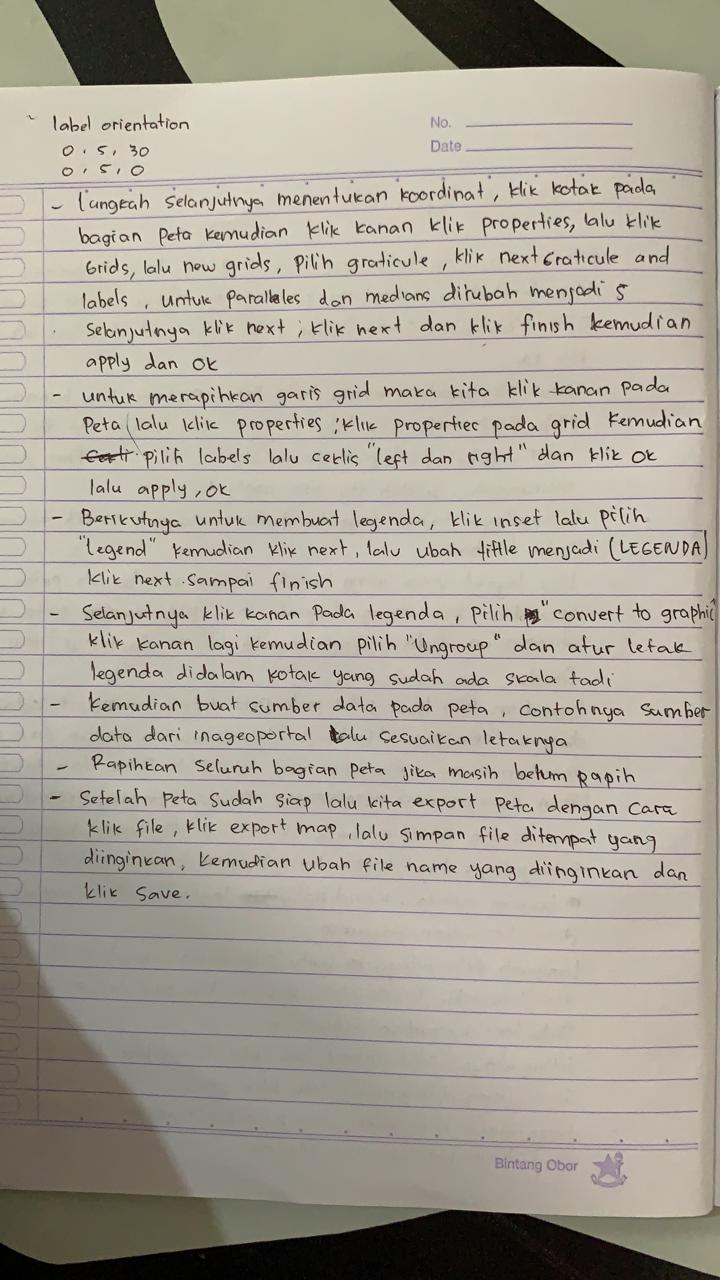 ~ label orientation
0, 5, 30
0, 5, 0
No.
Date
- langkah selanjutnya menentukan koordinat, klik kotak pada
bagian peta kemudian klik kanan klik properties, lalu klik
Grids, lalu new grids, pilih graticule, klik next Graticule and
labels, untuk Paralleles dan medians dirubah menjadi 5
Selanjutnya klik next, klik next dan klik finish kemudian
apply dan ok
- untuk merapihkan garis grid maka kita klik kanan pada
Peta lalu klik properties, klik properties pada grid kemudian
pilih labels lalu ceklis "left dan right" dan klik ok
lalu apply, ok
- Berikutnya untuk membuat legenda, klik inset lalu pilih
"legend" kemudian klik next, lalu ubah tittle menjadi (LEGENDA)
klik next sampai finish
- Selanjutnya klik kanan Pada legenda, pilih "convert to graphic
klik kanan lagi kemudian pilih "Ungroup" dan atur letak
legenda didalam kotak yang sudah ada skala tadi
- kemudian buat sumber data pada peta, contohnya sumber
data dari inageoportal lalu sesuaikan letaknya
- Rapihkan seluruh bagian peta jika masih belum rapih
- Setelah peta sudah siap lalu kita export peta dengan cara
klik file, klik export map, lalu simpan file ditempat yang
diinginkan, kemudian ubah file name yang diinginkan dan
klik save.
Bintang Obor